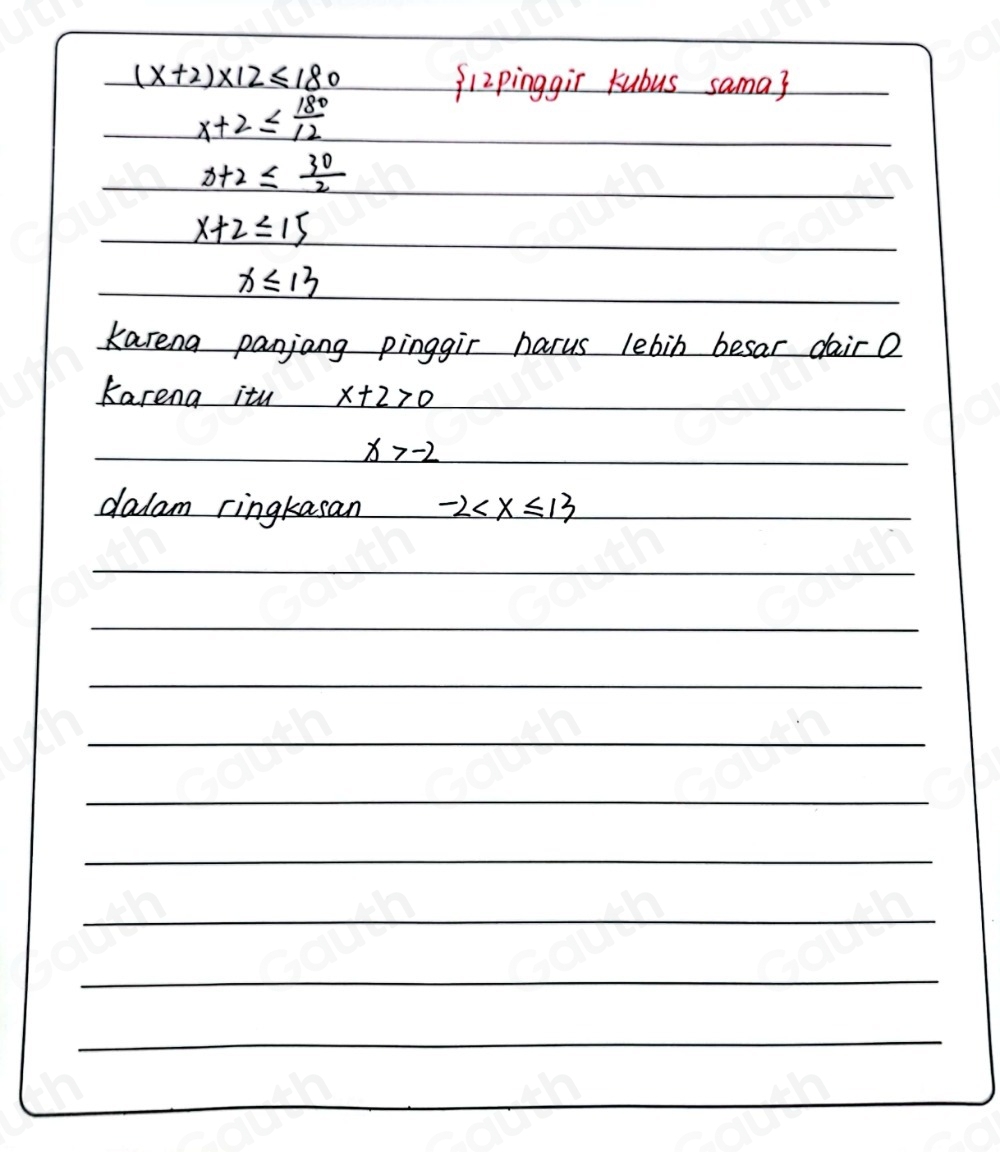 (x+2)×12≤180 {12pinggir kubus sama}
x+2 ≤ 180/12
x+2 ≤ 30/2
x+2 ≤ 15
x ≤ 13
karena panjang pinggir harus lebih besar dair 0
karena itu x+2>0
x >-2
dalam ringkasan -2< x ≤13
Gauth